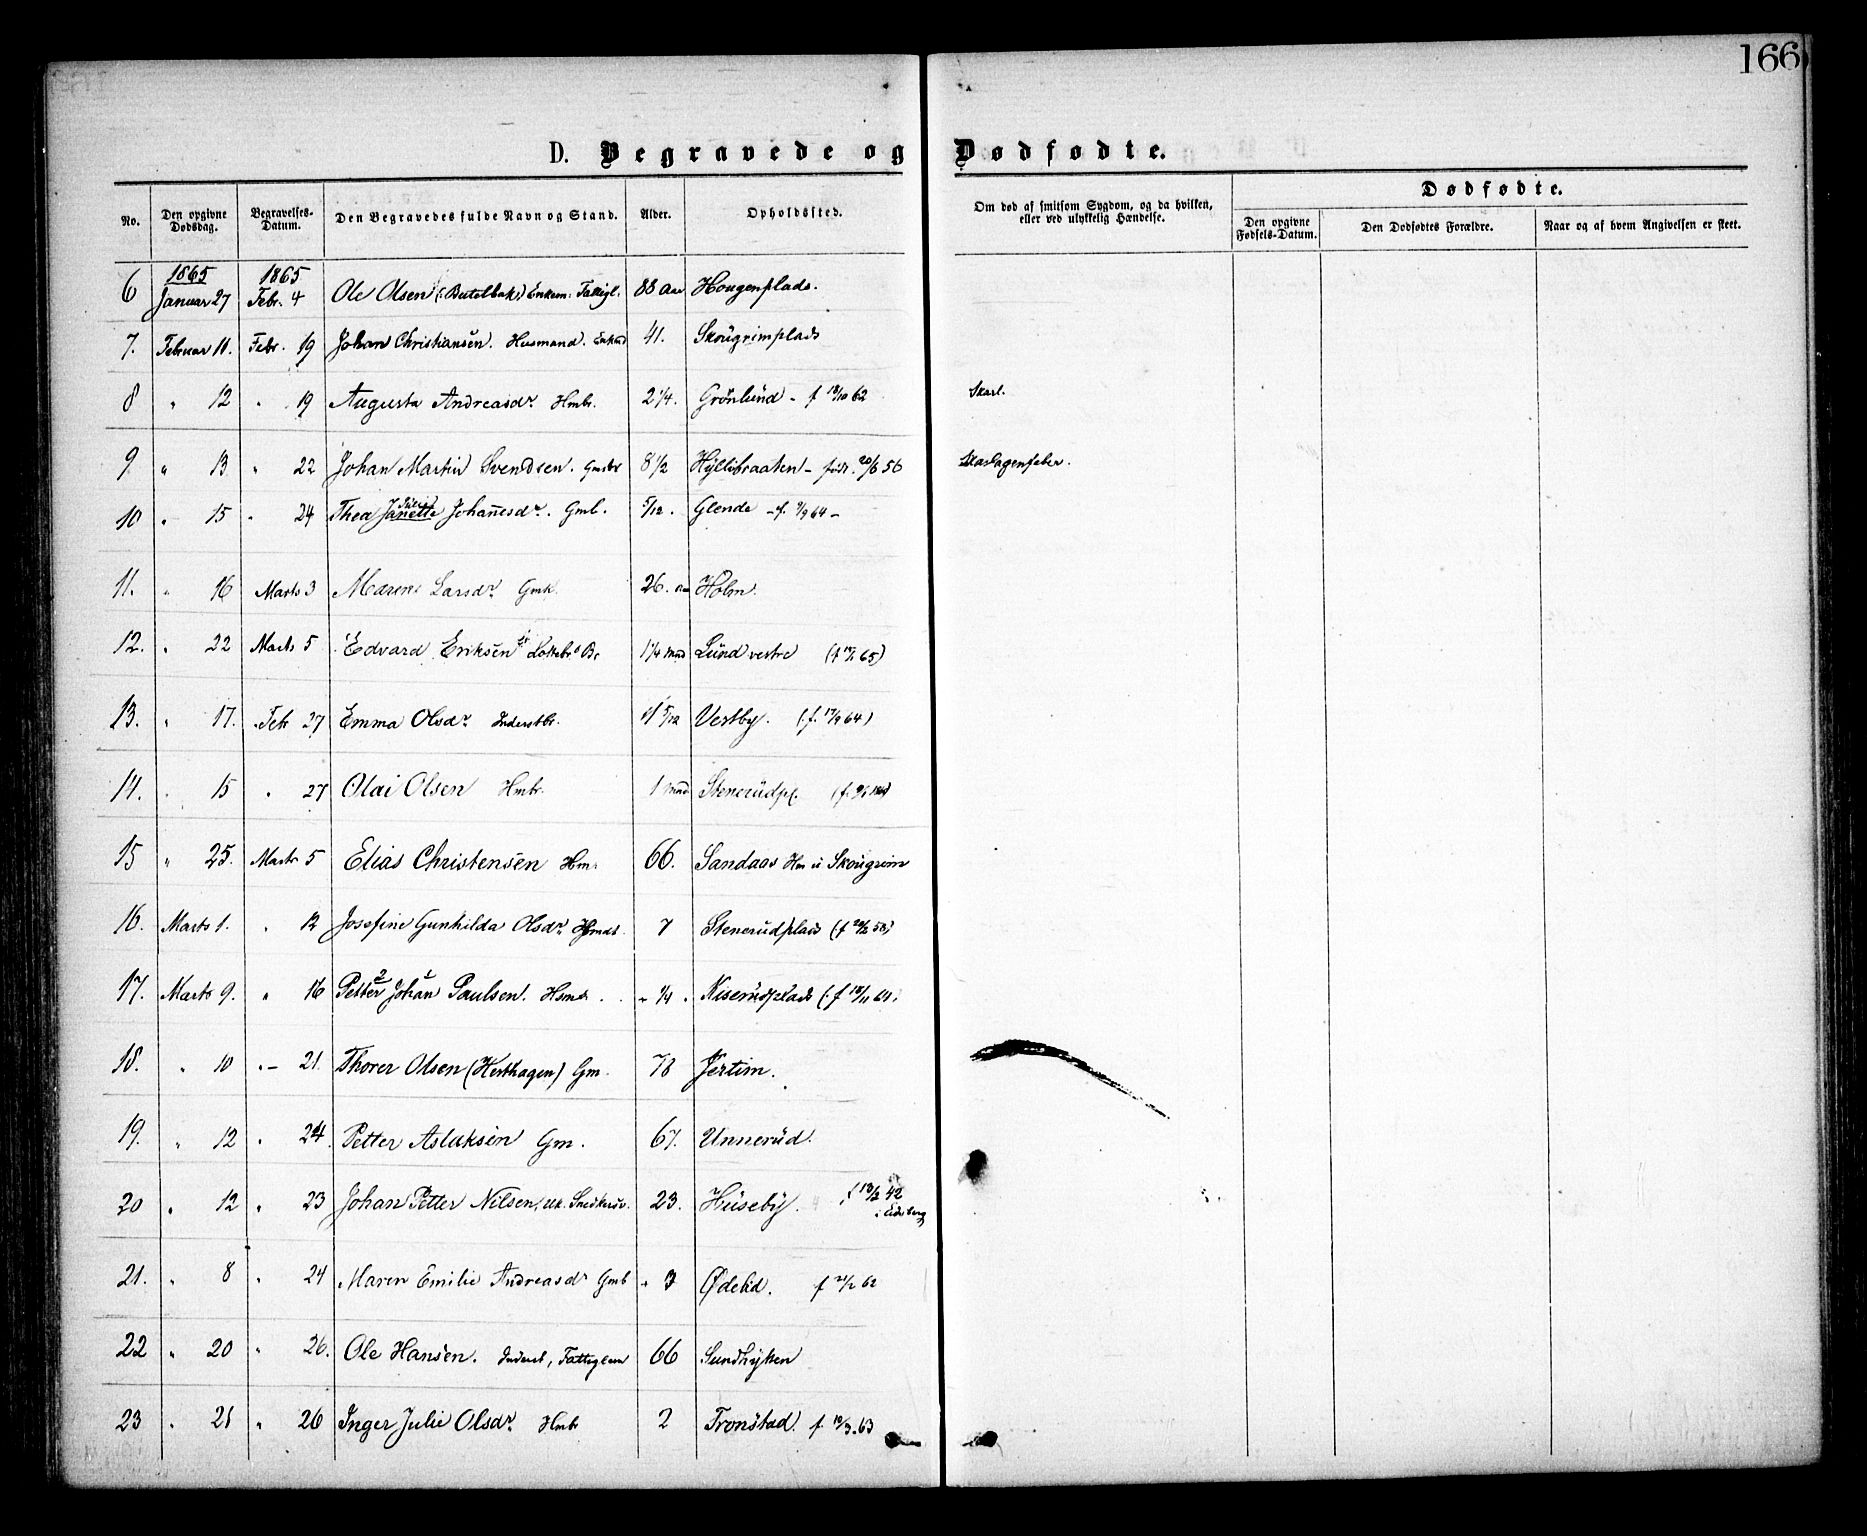 166
D. Begravede og Dødfødte.
No. Den opgivne Dødsdag. Begravelses-Datum. Den Begravedes fulde Navn og Stand. Alder. Opholdssted. Om død af smitsom Sygdom, og da hvilken, eller ved ulykkelig Hændelse. Dødfødte.
Den opgivne Fødsels-Datum. Den Dødfødtes Forældre. Naar og af hvem Angivelsen er skeet.
1865 1865
6 Januar 27 Febr. 4 Ole Olsen Enkem: Fattigl. 88 Aar Hougenplads.
7. Februar 11. Febr. 19 Johan Christiansen. Husmand. 41. Skougrimplads
8 " 12 " 19 Augusta Andreasdr. Hmbr. 2 1/4. Grönlund - f 18/10 62 Skarl.
9 " 13 " 22 Johan Martin Svendsen. Gmbr 8 1/2 Hyllibraaten - född. 20/6 56 Skarlagensfeber.
10 " 15 " 24 Thea Janette Johanesdr. Gmb. 5/12. Glende - f. 9/9 64 -
11. " 16 Marts 3 Maren Larsdr. Gmk. 26. Holm.
12. " 22 Marts 5 Edvard Eriksen 1 1/4 Mnd Lund vestre
13. " 17. Feb 27 Emma Olsdr. Inderstbr. 5/12 Vestby. (f. 17/9 64)
14. " 15 " 27 Olai Olsen Hmbr. 1 Mnd Stenerudpl.
15 " 25. Marts 5 Elias Christensen Hm. 66. Sandaas Hm u Skougrim
16. Marts 1. " 12 Josefine Gunhilda Olsdr. 7 Stenerudplads
17. Marts 9. " 16 2 Petter 1 Johan Paulsen. " 1/4. Kiserudplads
18. " 10 " - 21. Thorer Olsen (Hesthagen) Gm. 78 Jertim.
19. " 12 " 24. Petter Aslaksen Gm. 67. Unnerud.
20 " 12 " 23 Johan Petter Nilsen, uk. Snedkersv. 23. Huseby. f 13/2 42 i Eidsberg
21. " 8 " 24 Maren Emilie Andreasdr Gmb " 3 Ødelid. f 21/2 62
22 " 20 " 26. Ole Hansen. Inderst, Fattiglem 66 Sundbyken
23 " 21 " 26 Inger Julie Olsdr. Hmb 2 Tronstad. f 10/3. 63